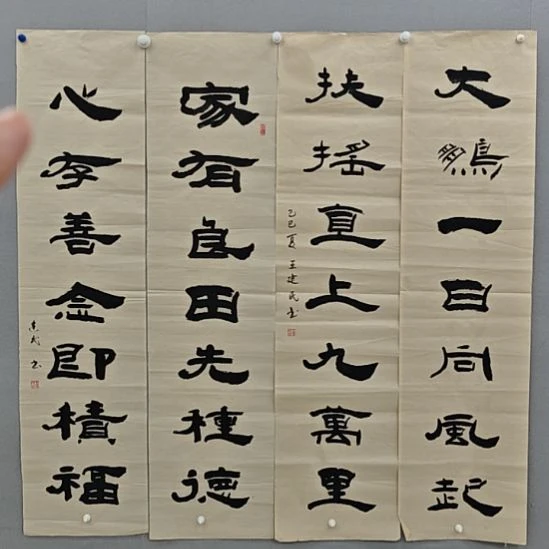 大鵬一日同風起
扶搖直上九萬里
乙巳夏 王建民书
家有良田先種德
心存善念即積福
建民 书